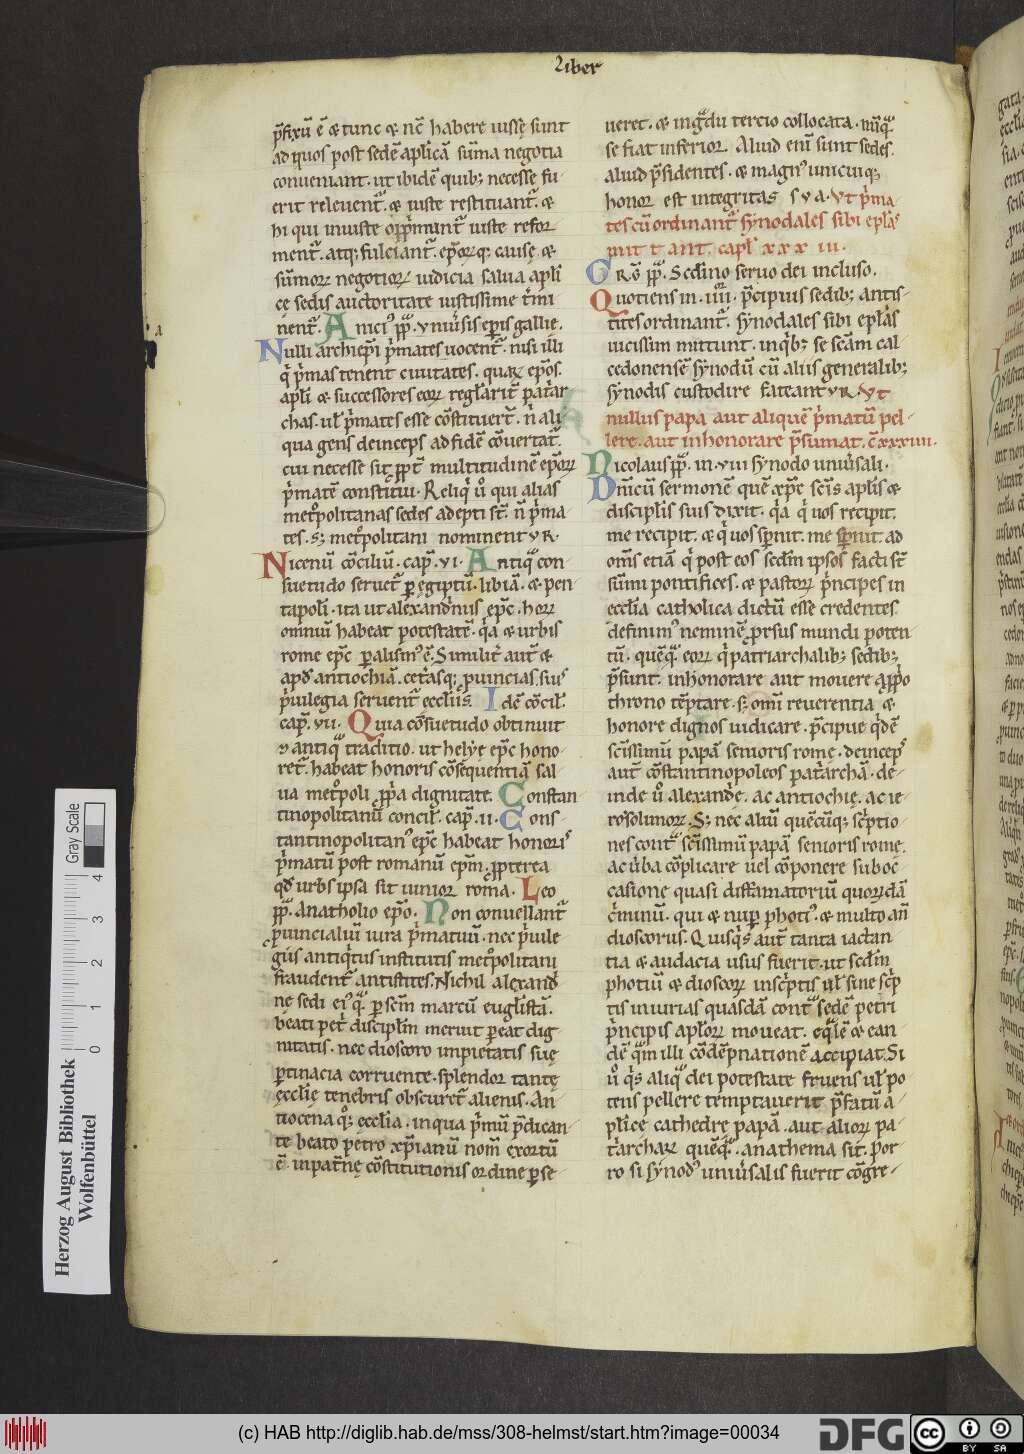 Liber
p̄fixū ē ⁊ tunc ⁊ nc̄ habere iussę sunt
ad quos post sedē aplicā sūma negotia
conueniant. ut ibidē quib; necesse fu-
erit releuent᷑. ⁊ iuste restituant᷑. ⁊
hi qui iniuste opp̄munt᷑ iuste refor
ment᷑. atq; fulciant᷑. epōrq; causę ⁊
sūmorꝝ negotiorꝝ iudicia salua apli
cę sedis auctoritate iustissime t̄mi
nent᷑. Anici᷒ pp̄. vniūsis epīs gallię.
Nulli archiepī p̄mates uocent᷑. nisi illi
q̄ p̄mas tenent ciuitates. quarꝝ epōs.
apli ⁊ successores eorꝝ regl̄arit᷑ pat̄ar
chas. ul̄ p̄mates esse cōstituert̄. n̄ ali
qua gens deinceps ad fidē cōuertat᷑.
cui necesse sit ꝓpt̄ multitudinē epōrꝝ
p̄matē constitui. Reliq̇ u̇ qui alias
met̄politanas sedes adepti st̄. n̄ p̄ma
tes. s; met̄politani nominentvr.
Nicenū cōciliū. cap̄. vi. Antiq̄ con
suetudo seruet᷑ ꝑ ęgiptū. libiā. ⁊ pen
tapoli. ita ut alexand̄nus ep̄c. horꝝ
omniū habeat potestatē. q̄a ⁊ urbis
rome ep̄c ꝑalism᷒ ē. Similit̄ aut̄ ⁊
apd̄ antiochiā. cet̄asq; ꝓuincias sui᷒
p̄uilegia seruent᷑ ecclīis. Idē cōcil̄.
cap̄. vii. Quia cōsuetudo obtinuit
⁊ antiq̄ traditio. ut helye ep̄c hono-
ret᷑. habeat honoris cōsequentiā sal-
ua met̄poli ꝓp̄a dignitate. Constan
tinopolitanū concil̄. cap̄. ii. Cons-
tantinopolitan᷒ ep̄c habeat honoris
p̄matū post romanū ep̄m. ꝓpterea
qđ urbs ipsa sit iunior roma. Leo
pp̄. Anatholio ep̄o. Non conuellant᷑
ꝓuincialiū iura p̄matuū. nec p̄uile
giis antiq̇tus institutis met̄politani
fraudent᷑ antistites. Nichil alexand̄
nę sedi ei᷒ q̄ ꝑ sc̄m marcū eugl̄istā.
beati pet̄ disciplīn meruit pereat dig-
nitatis. nec dioscoro impietatis suę
ꝑtinacia corruente. splendor tantę
ęcclię tenebris obscuret᷑ alienis. An-
tiocena q̊; ęcclia. in qua p̄mū p̄dican-
te beato petro xp̄ianū nom̄ exortū
ē. in pat̄nę cōstitutionis ordine ꝑse-
ueret. ⁊ in g̊du tercio collocata. nūq̄
se fiat inferior. Aliud enī sunt sedes.
aliud p̄sidentes. ⁊ magn᷒ unicuiq;
honor est integritas sva. Vt p̄ma-
tes cū ordinant᷑ synodales sibi eplās
mittant. capl̄ xxxiii.
GRG̅ pp̄. Sec̄dino seruo dei incluso.
Quotiens in .iiii. p̄cipuis sedib; antis-
tites ordinant᷑. synodales sibi eplās
uicissim mittunt. in q̇b; se sc̄am cal
cedonensē synodū cū aliis generalib;
synodis custodire fateantvr. Vt
nullus papa aut aliquē p̄matū pel-
lere. aut inhonorare p̄sumat. c̄ xxxiiii.
Nicolaus pp̄. in .viii synodo uniūsali.
Dn̄icū sermonē quē xp̄c scīs aplis ⁊
disciplīs suis dixit. q̄a q̇ uos recipit.
me recipit. ⁊ q̇ uos spnit. me spnit. ad
om̄s etiā q̇ post eos sedm̄ ipsos facti st̄
sūmi pontifices. ⁊ pastorꝝ p̄ncipes in
ecclīa catholica dictū esse credentes.
definim᷒ neminē ꝓrsus mundi poten-
tū. quēq̄ eorꝝ q̇ pat̄iarchalib; sedib;
p̄sunt. inhonorare aut mouere a ꝓp̄o
throno tēptare. s; omī reuerentia ⁊
honore dignos iudicare. p̄cipue q̇dē
sc̄issimū papā senioris romę. deinceps
aut̄ cōstantinopoleos pat̄archā. de-
inde u̇ alexand̄e. ac antiochię. ac ie-
rosolimorꝝ. S; nec aliū quēcūq; sc̄ptio-
nes cont᷑ sc̄issimū papā senioris romę.
ac ūba cōplicare uel cōponere sub oc-
casione quasi diffamatoriū quorꝝdā
c̄minū. qui ⁊ nup photi᷒. ⁊ multo an̄
dioscorus. Quisq̇s aut̄ tanta iactan
tia ⁊ audacia usus fuerit. ut sedm̄
photiū ⁊ dioscorꝝ in sc̄ptis ul̄ sine sc̄p
tis iniurias quasdā cont᷑ sedē petri
p̄ncipis aplorꝝ moueat. eq̄lē ⁊ ean-
dē q̄m illi cōdēpnationē accipiat. Si
u̇ q̇s aliq̄ dei potestate fruens ul̄ po
tens pellere temptauerit p̄fatū a-
plicę cathedrę papā. aut aliorꝝ pa-
t̄archarꝝ quēq̄. anathema sit. Por
ro si synod᷒ uniūsalis fuerit cōgre-
Gray Scale
0 1 2 3 4
Herzog August Bibliothek
Wolfenbüttel
(c) HAB http://diglib.hab.de/mss/308-helmst/start.htm?image=00034
DFG
cc BY SA